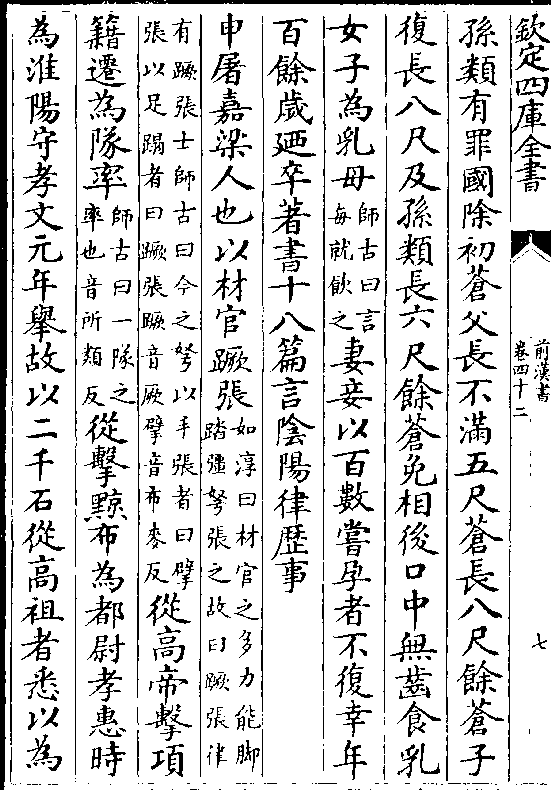 欽定四庫全書
前漢書
卷四十二
七
孫類有罪國除初蒼父長不滿五尺蒼長八尺餘蒼子
復長八尺及孫類長六尺餘蒼免相後口中無齒食乳
女子為乳母師古曰言每就飲之妻妾以百數嘗孕者不復幸年
百餘歲廼卒著書十八篇言陰陽律歴事
申屠嘉梁人也以材官蹶張如淳曰材官之多力能脚踏彊弩張之故曰蹶張律
有蹶張士師古曰今之弩以手張者曰擘張以足蹋者曰蹶張蹶音厥擘音布麥反從高帝擊項
籍遷為隊率師古曰一隊之率也音所類反從擊黥布為都尉孝惠時
為淮陽守孝文元年舉故以二千石從高祖者悉以為